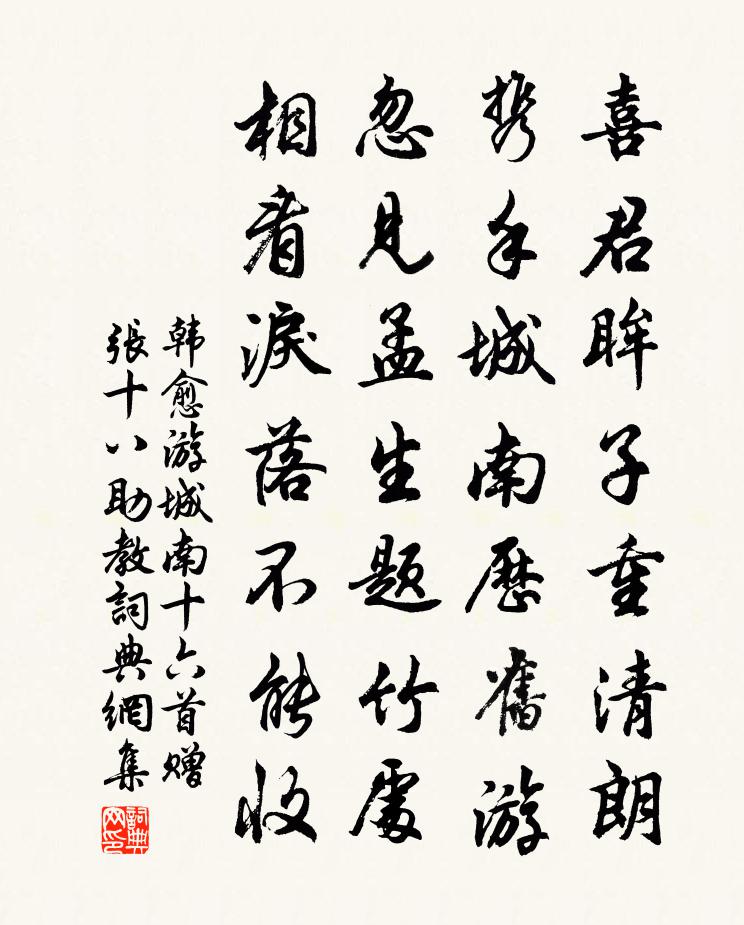 喜君眸子重清朗
携手城南歷舊游
忽見孟生題竹處
相看淚落不能收
韩愈游城南十六首赠
張十八助教詞典網集
詞典网印